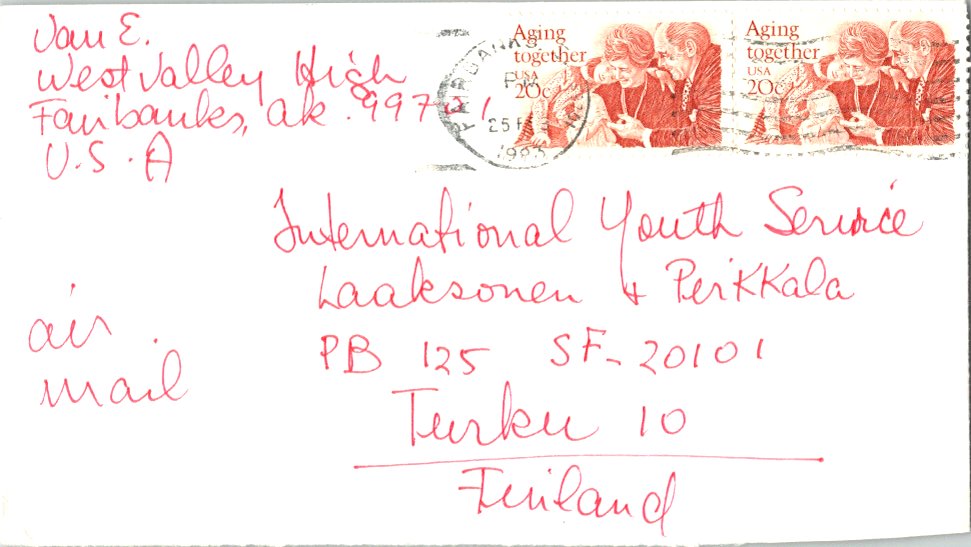 Jan E.
West Valley High
Fairbanks, ak. 99701
U.S.A
Aging
together
USA
20c
Aging
together
USA
20c
FAIRBANKS
25 FEB
1983
International Youth Service
Laaksonen + Perkkala
PB 125 SF-20101
Turku 10
Finland
air
mail